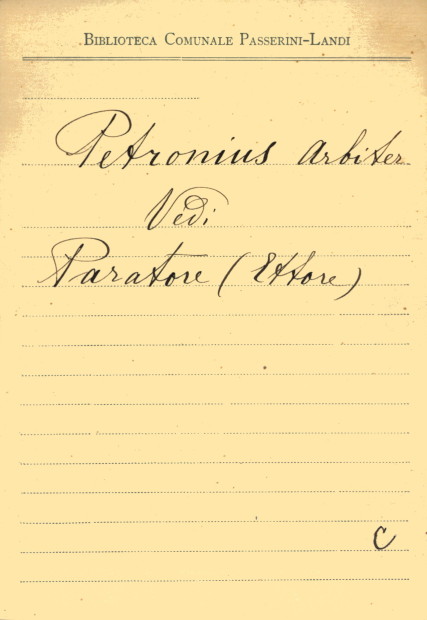 Biblioteca Comunale Passerini-Landi
Petronius Arbiter
Vedi
Paratore (Ettore)
C